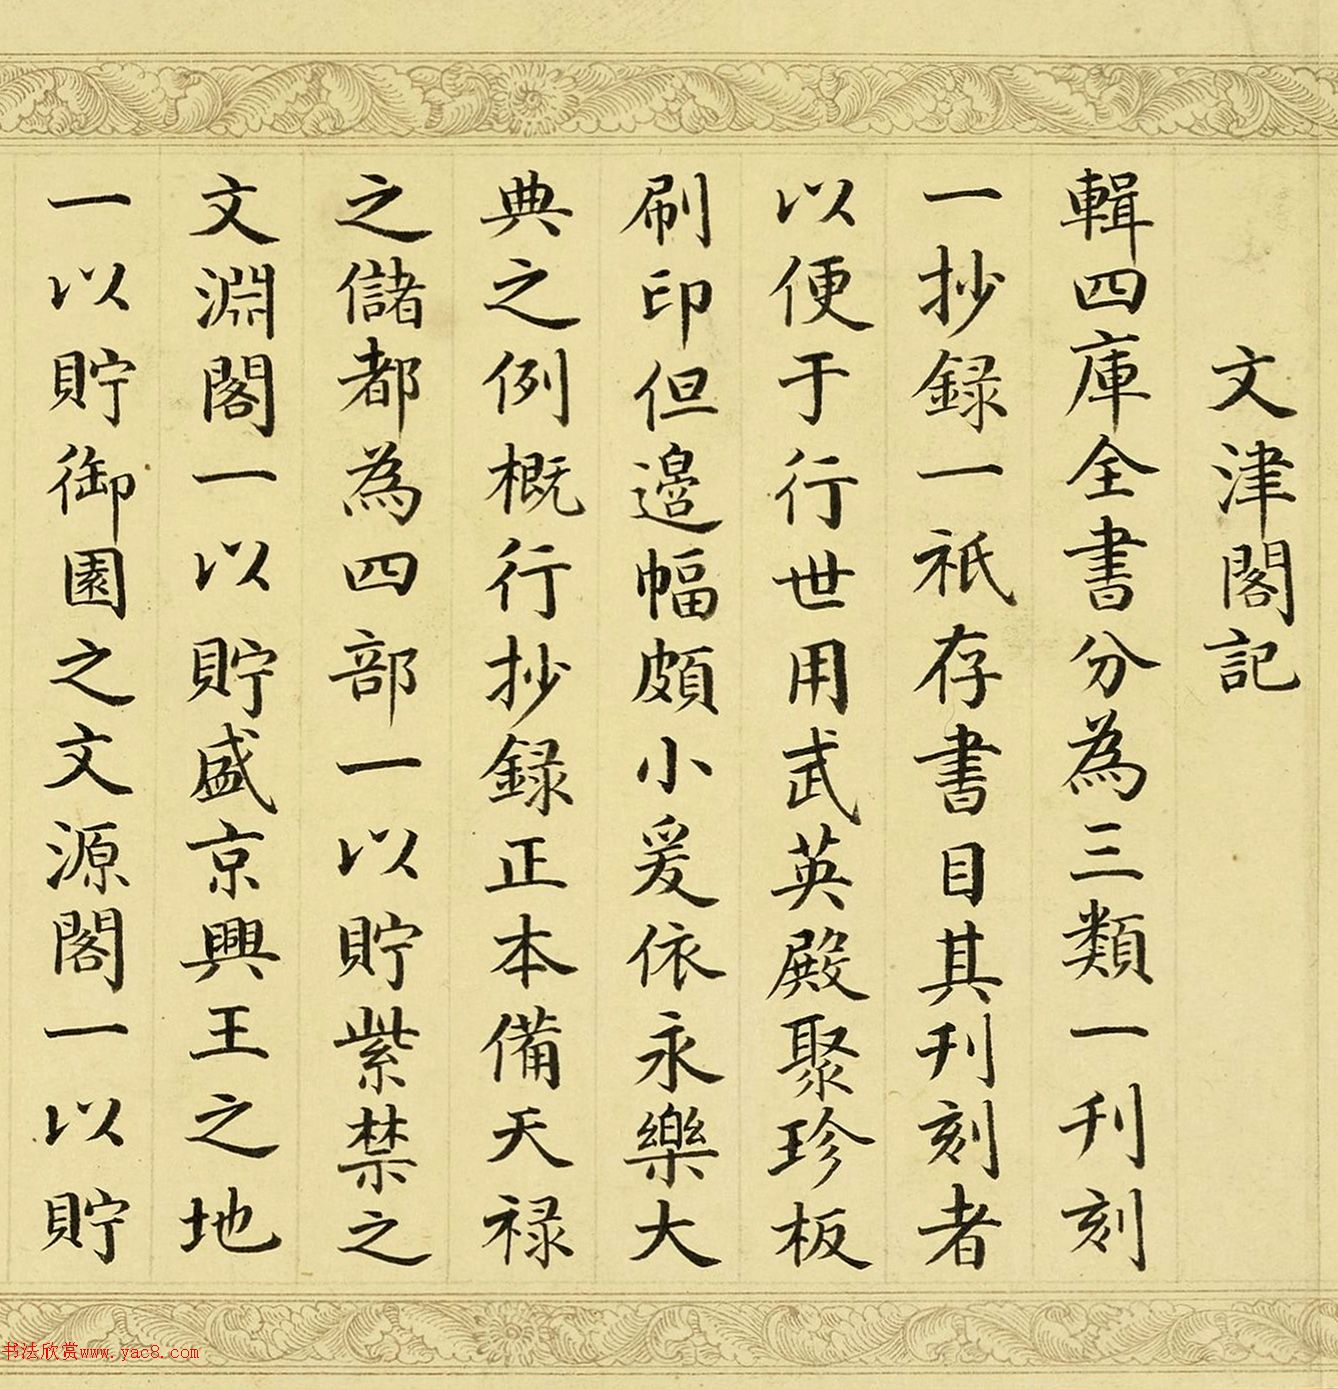 文津閣記
輯四庫全書分為三類一刊刻
一抄録一祇存書目其刊刻者
以便于行世用武英殿聚珍板
刷印但邊幅頗小爰依永樂大
典之例概行抄録正本備天禄
之儲都為四部一以貯紫禁之
文淵閣一以貯盛京興王之地
一以貯御園之文源閣一以貯
书法欣赏www.yac8.com